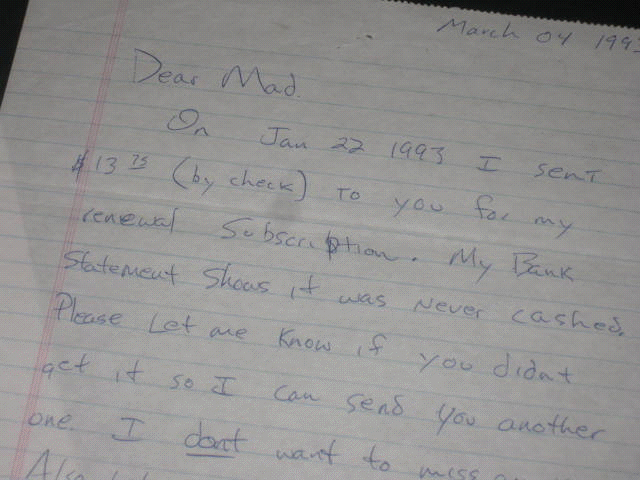 March 04 199
Dear Mad.
On Jan 22 1993 I sent
$13 75 (by check) to you for my
renewal Subscription. My Bank
Statement Shows it was Never cashed.
Please Let me Know if you didnt
get it so I can send you another
one. I dont want to miss
Also